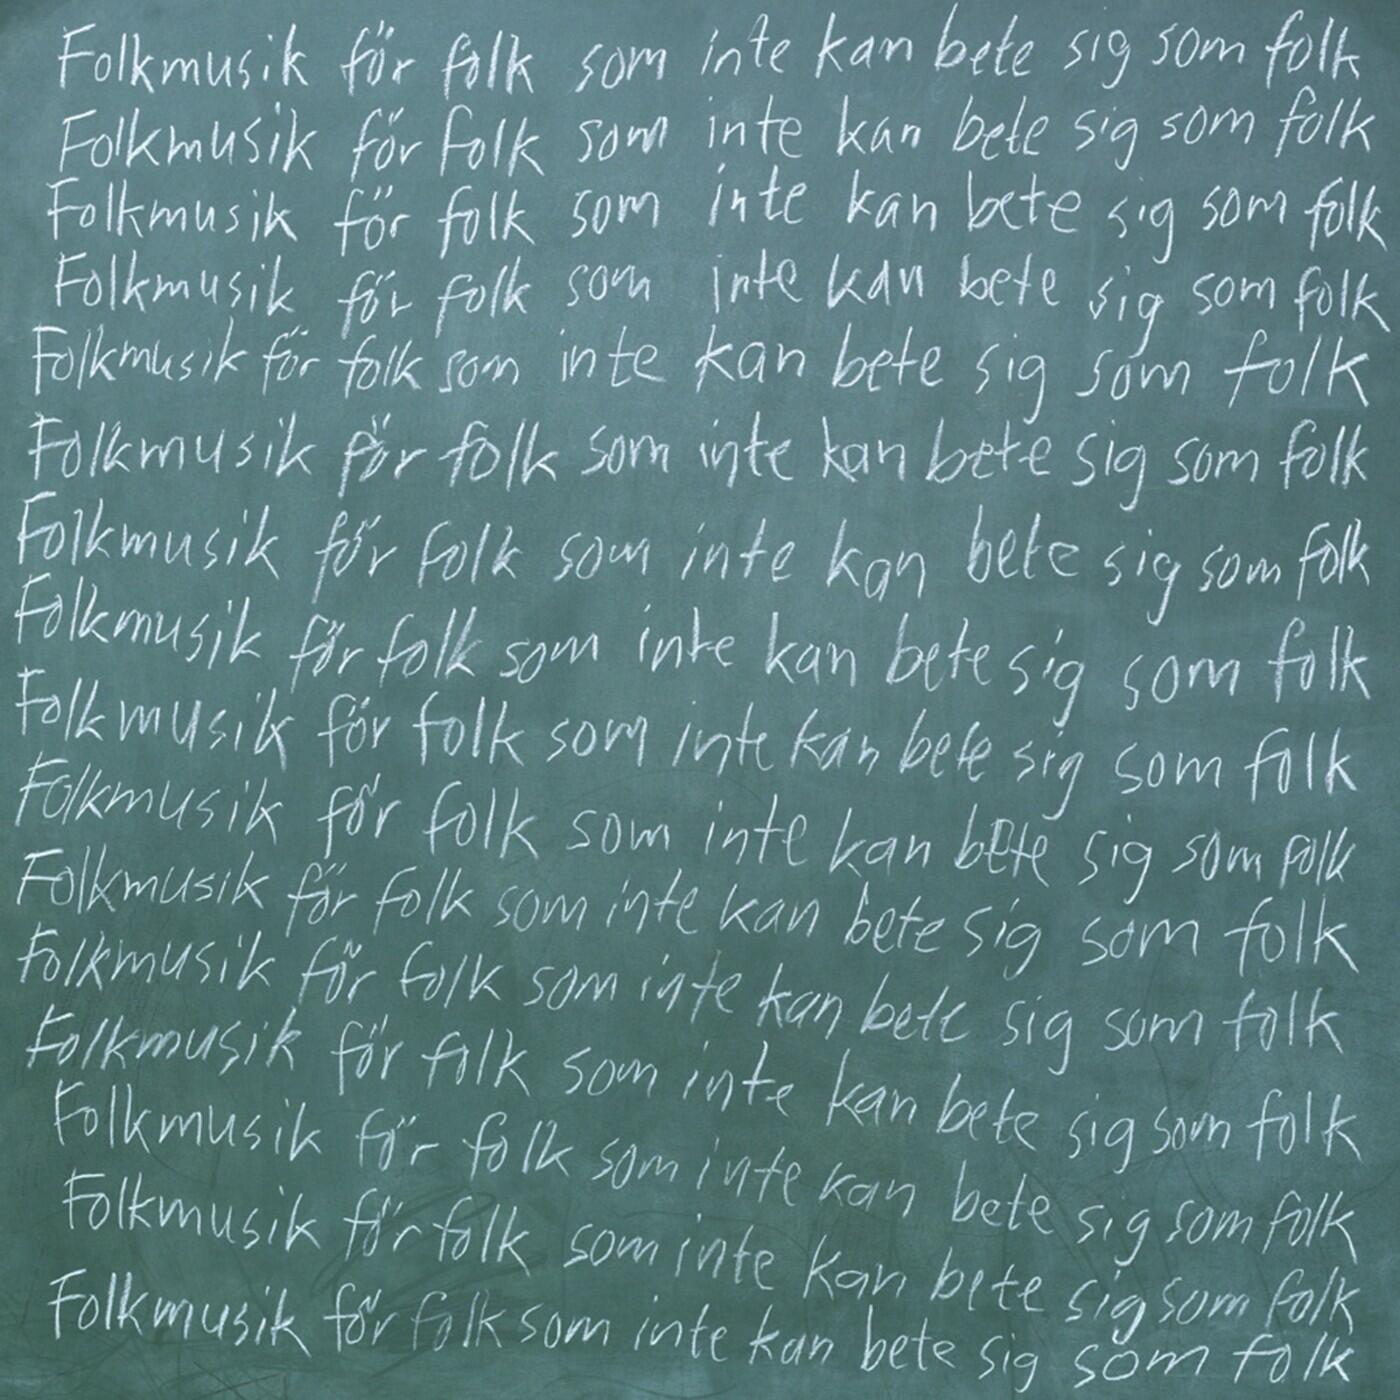 Folkmusik för folk som inte kan bete sig som folk
Folkmusik för folk som inte kan bete sig som folk
Folkmusik för folk som inte kan bete sig som folk
Folkmusik för folk som inte kan bete sig som folk
Folkmusik för folk som inte kan bete sig som folk
Folkmusik för folk som inte kan bete sig som folk
Folkmusik för folk som inte kan bete sig som folk
Folkmusik för folk som inte kan bete sig som folk
Folkmusik för folk som inte kan bete sig som folk
Folkmusik för folk som inte kan bete sig som folk
Folkmusik för folk som inte kan bete sig som folk
Folkmusik för folk som inte kan bete sig som folk
Folkmusik för folk som inte kan bete sig som folk
Folkmusik för folk som inte kan bete sig som folk
Folkmusik för folk som inte kan bete sig som folk
Folkmusik för folk som inte kan bete sig som folk